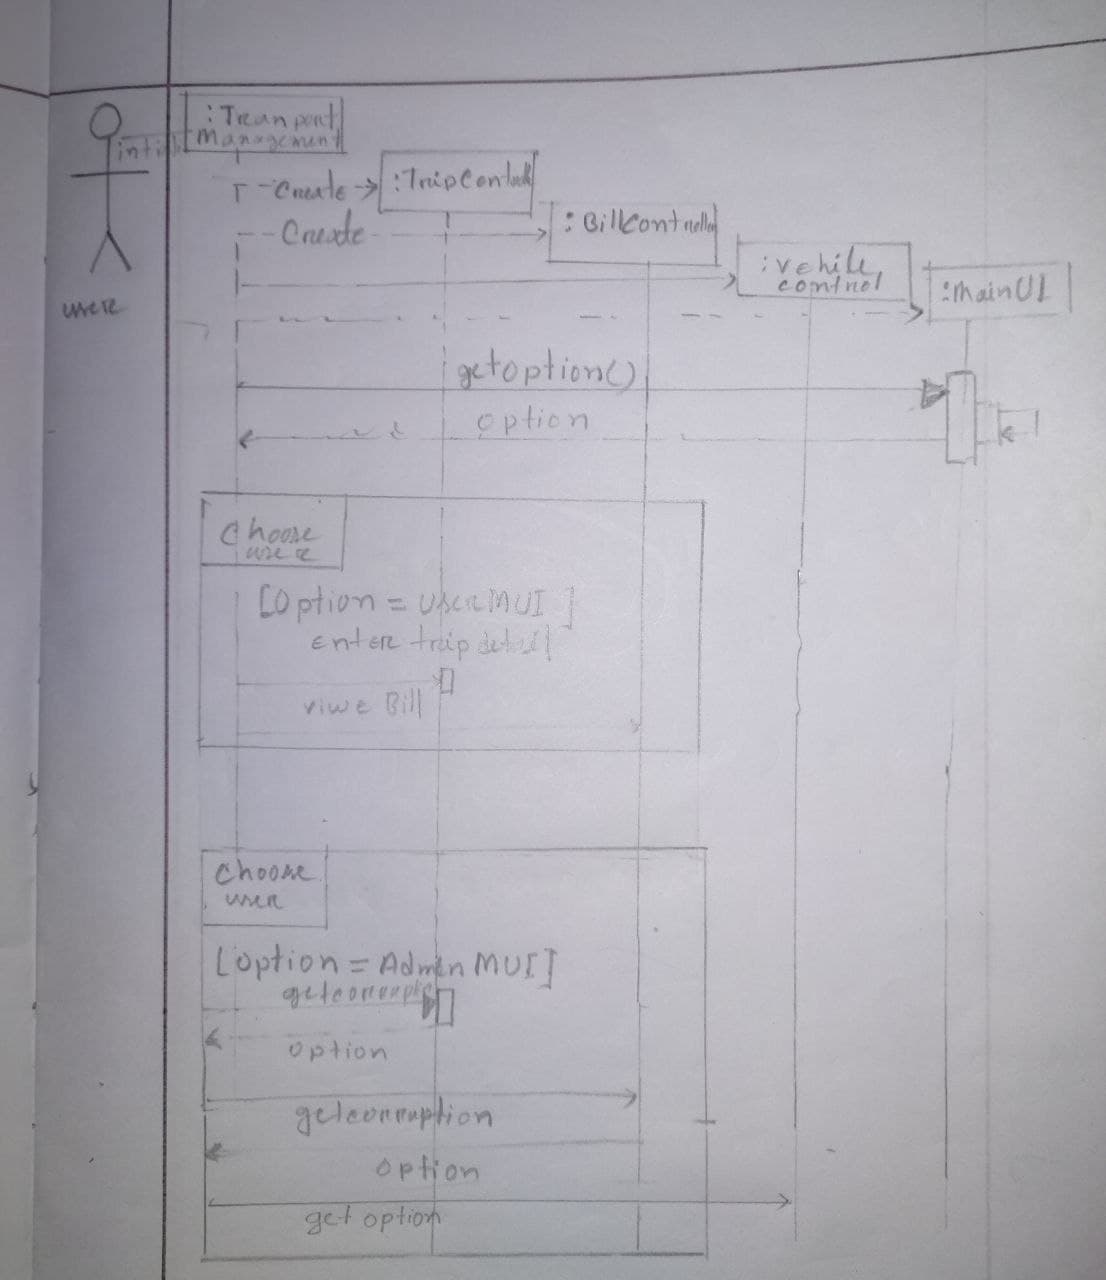 :Tranport
management
inti
usere
-Create->
:TripControll
Create
:BillController
:vehile
control
:MainUI
getoption()
option
Choose
usere
[Option = UserMUI]
enter trip detail
viwe Bill
Choose
user
[option = Admin MUI]
option
getcorruption
option
get option